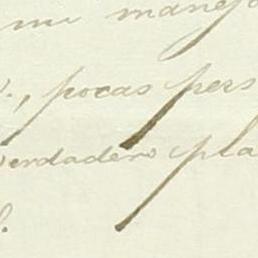 mi manejo
V., pocas pers
verdadero pla